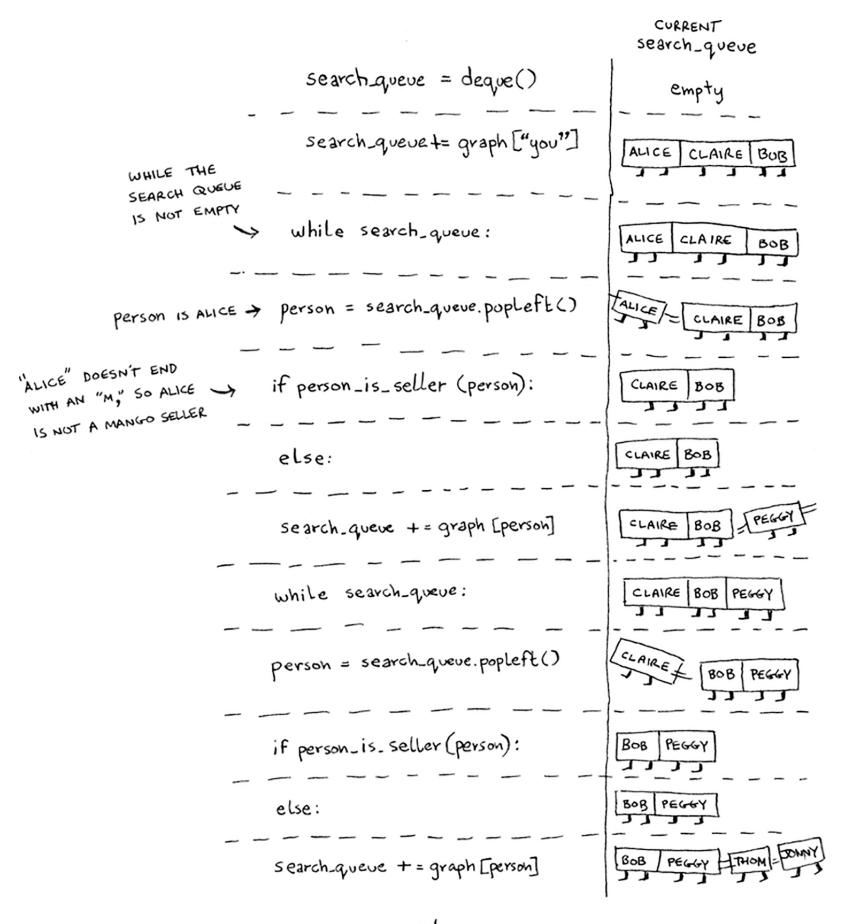 CURRENT
search_queue
search_queue = deque()
empty
search_queue += graph["you"]
ALICE CLAIRE BOB
WHILE THE
SEARCH QUEUE
IS NOT EMPTY
while search_queue:
ALICE CLAIRE BOB
person IS ALICE → person = search_queue.popleft()
ALICE CLAIRE BOB
"ALICE" DOESN'T END
WITH AN "M," SO ALICE
IS NOT A MANGO SELLER
if person_is_seller (person):
CLAIRE BOB
else:
CLAIRE BOB
search_queue += graph [person]
CLAIRE BOB PEGGY
while search_queue:
CLAIRE BOB PEGGY
person = search_queue.popleft()
CLAIRE BOB PEGGY
if person_is_seller (person):
BOB PEGGY
else:
BOB PEGGY
search_queue += graph [person]
BOB PEGGY THOM JONNY